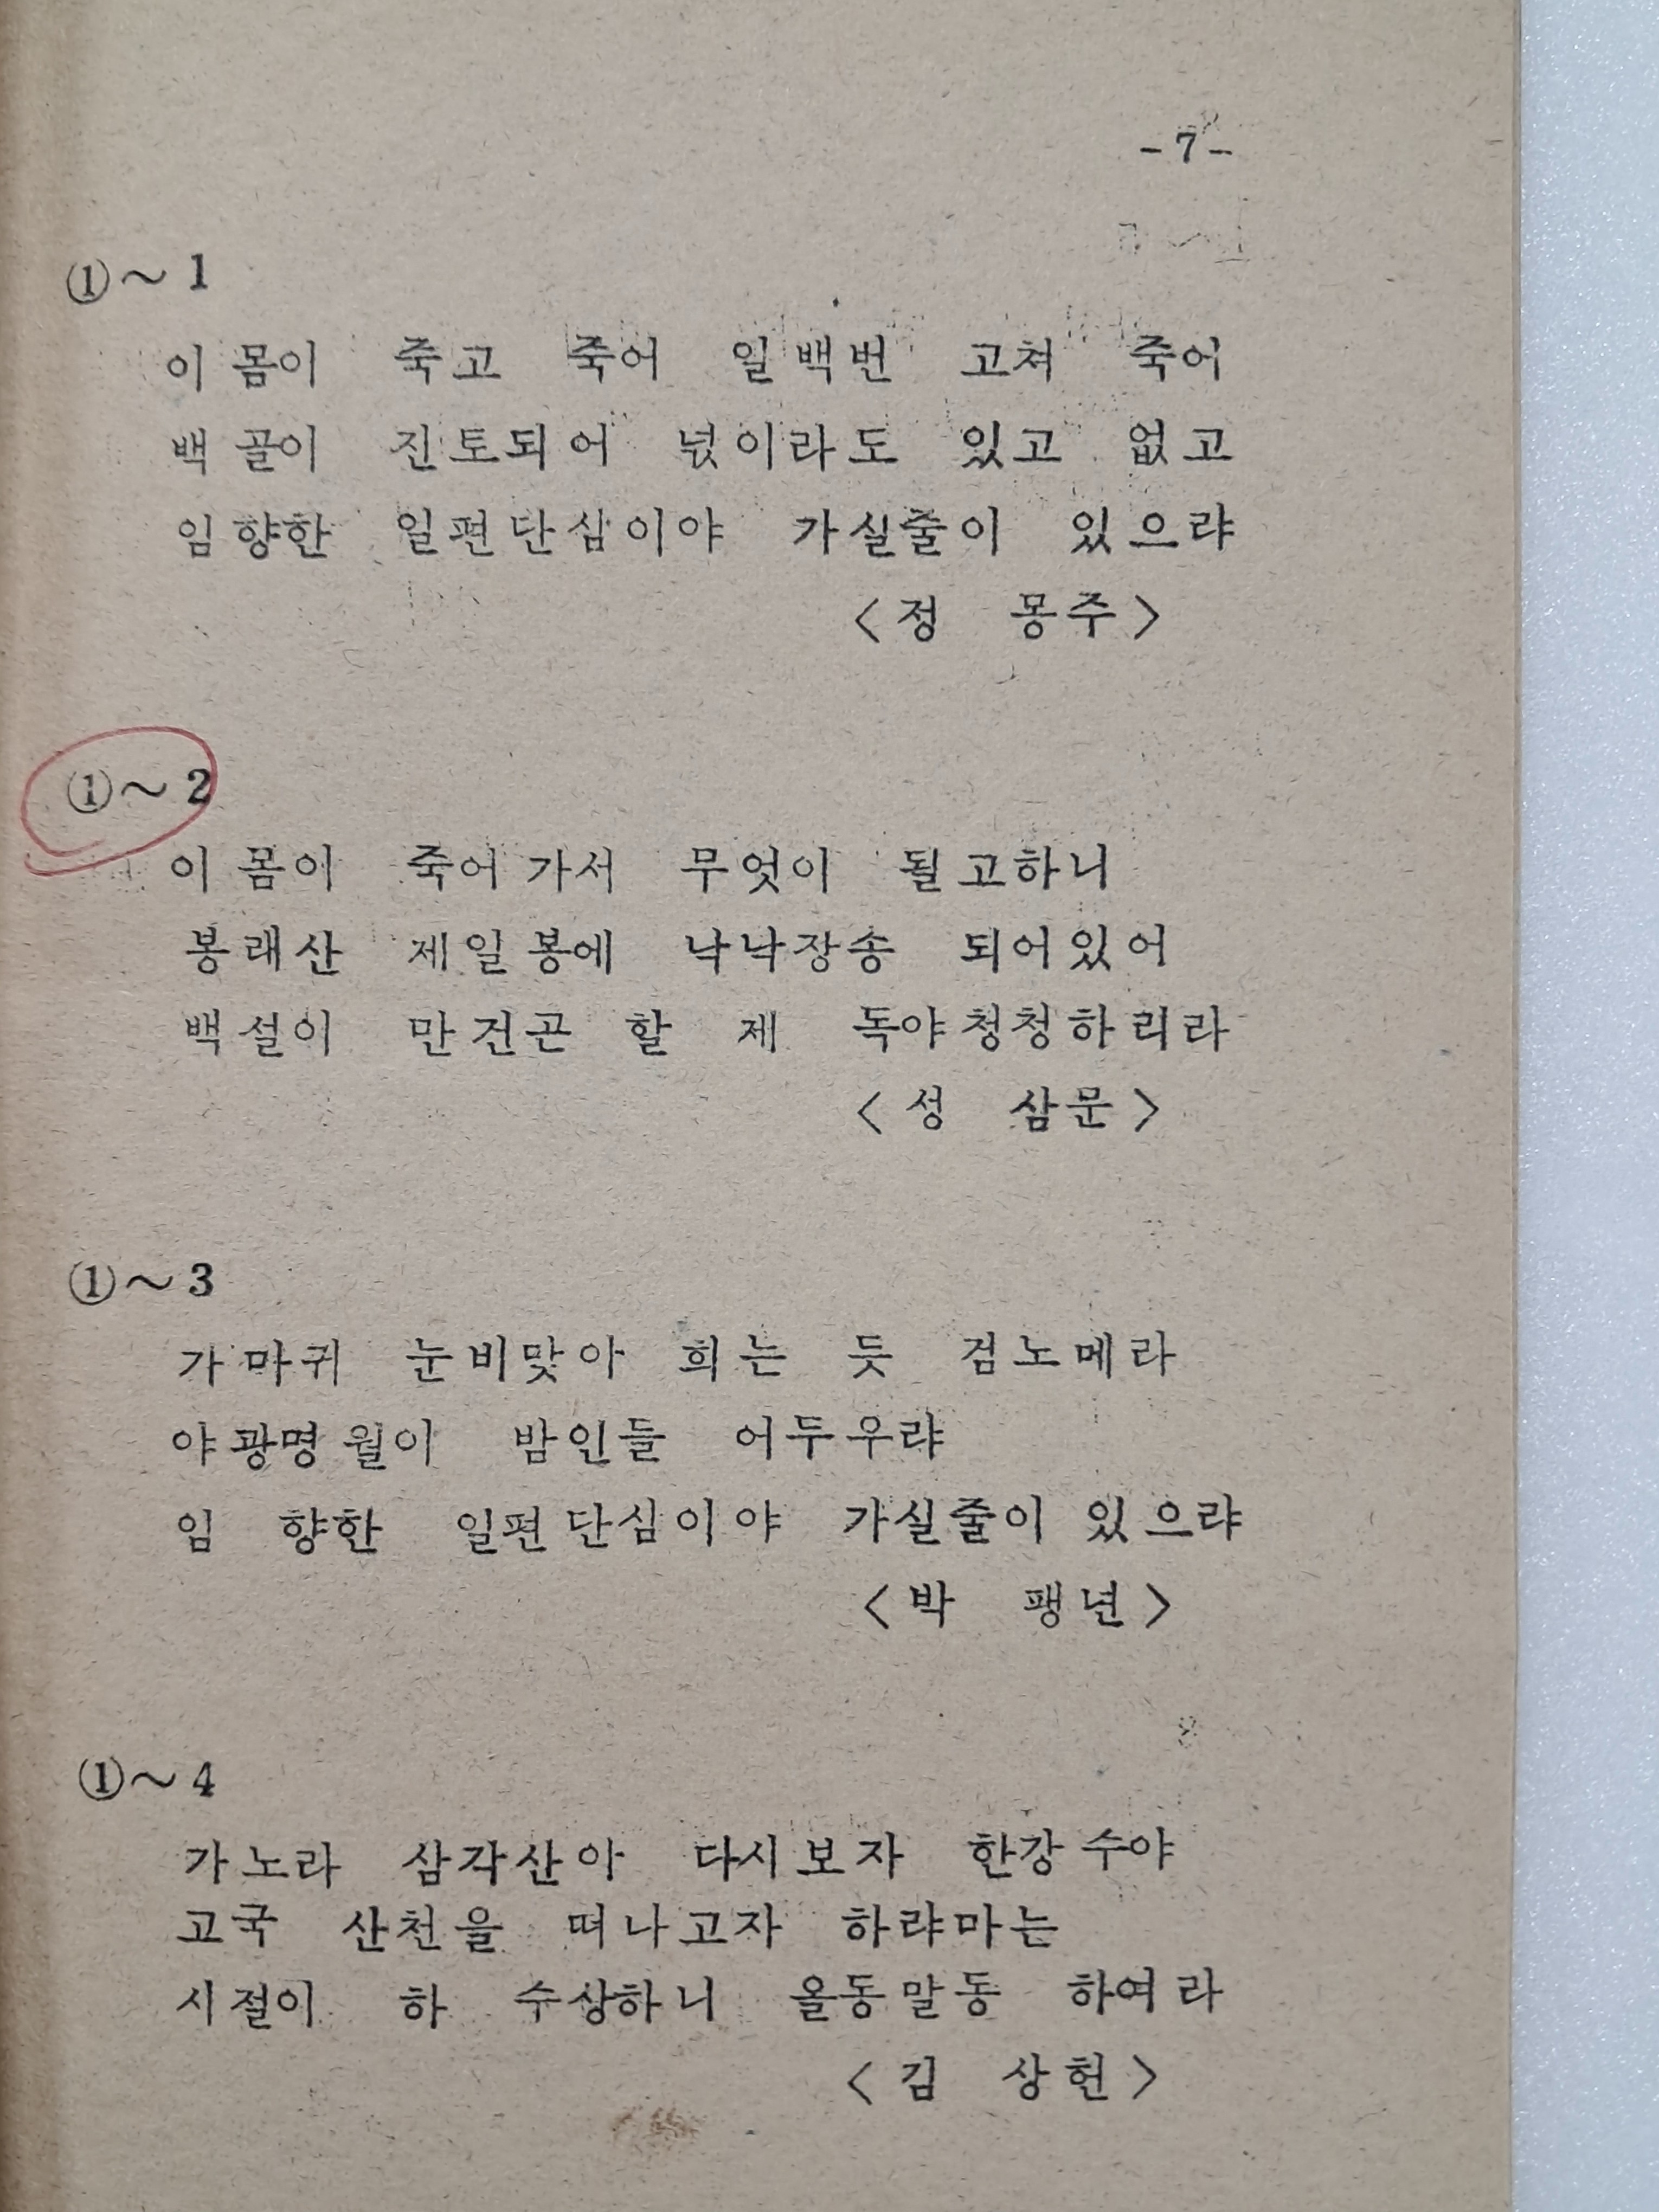 -7-
①~1
이 몸이 죽고 죽어 일백번 고쳐 죽어
백골이 진토되어 넋이라도 있고 없고
임향한 일편단심이야 가실줄이 있으랴
<정 몽주>
①~2
이 몸이 죽어가서 무엇이 될고하니
봉래산 제일봉에 낙낙장송 되어있어
백설이 만건곤 할 제 독야청청하리라
<성 삼문>
①~3
가마귀 눈비맞아 희는 듯 검노메라
야광명월이 밤인들 어두우랴
임 향한 일편단심이야 가실줄이 있으랴
<박 팽년>
①~4
가노라 삼각산아 다시보자 한강수야
고국 산천을 떠나고자 하랴마는
시절이 하 수상하니 올동말동 하여라
<김 상헌>